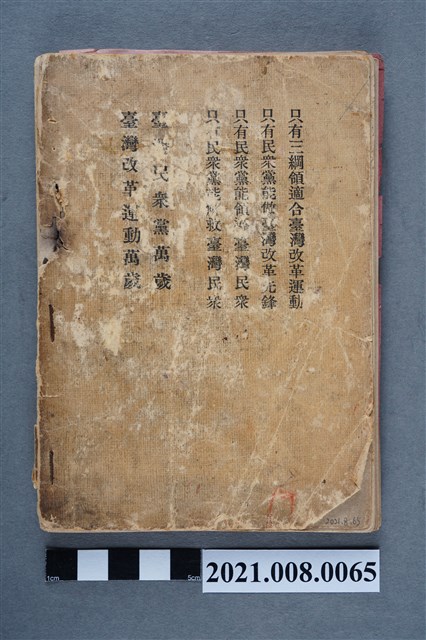 只有三綱領適合臺灣改革運動
只有民衆黨能做臺灣改革先鋒
只有民衆黨能領 臺灣民衆
只有民衆黨能 救臺灣民衆
臺 民衆黨萬歲
臺灣改革運動萬歲
2021.8.65
1cm 5cm
2021.008.0065